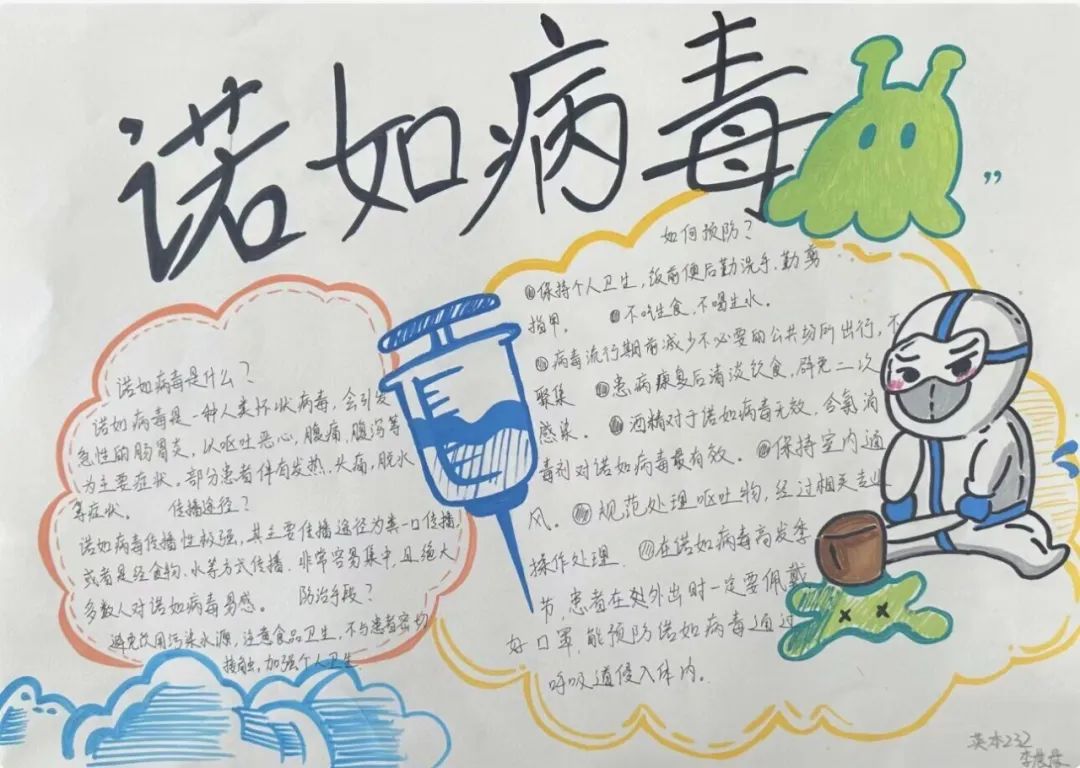 诺如病毒
诺如病毒是什么?
诺如病毒是一种人类杯状病毒,会引发
急性的肠胃炎,以呕吐恶心,腹痛,腹泻等
为主要症状,部分患者伴有发热,头痛,脱水
等症状。 传播途径?
诺如病毒传播性较强,其主要传播途径为粪一口传播,
或者是经食物、水等方式传播,非常容易集中,且绝大
多数人对诺如病毒易感。 防治手段?
避免饮用污染水源,注意食品卫生,不与患者密切
接触,加强个人卫生
如何预防?
保持个人卫生,饭前便后勤洗手,勤剪
指甲。 不吃生食,不喝生水。
病毒流行期前减少不必要的公共场所出行,不
聚集 患病康复后清淡饮食,避免二次
感染。 酒精对于诺如病毒无效,含氯消
毒剂对诺如病毒最有效。 保持室内通
风。 规范处理呕吐物,经过相关
操作处理. 在诺如病毒高发季
节,患者在外出时一定要佩戴
好口罩,能预防诺如病毒通过
呼吸道侵入体内。
英本232
李